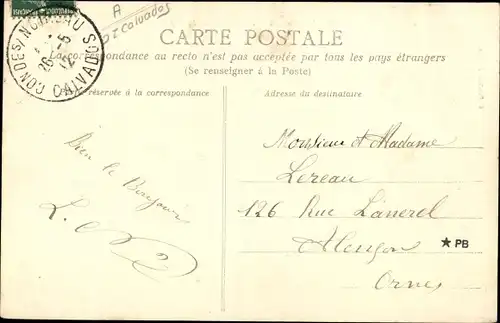 A
Calvados
CONDÉ S/ NOIREAU
26 -5
12
CALVADOS
CARTE POSTALE
La correspondance au recto n'est pas acceptée par tous les pays étrangers
(Se renseigner à la Poste)
réservée à la correspondance
Adresse du destinataire
Monsieur et Madame
Lereau
126 Rue Lanerel
Alençon
Orne
Bien le Bonjour
★ PB